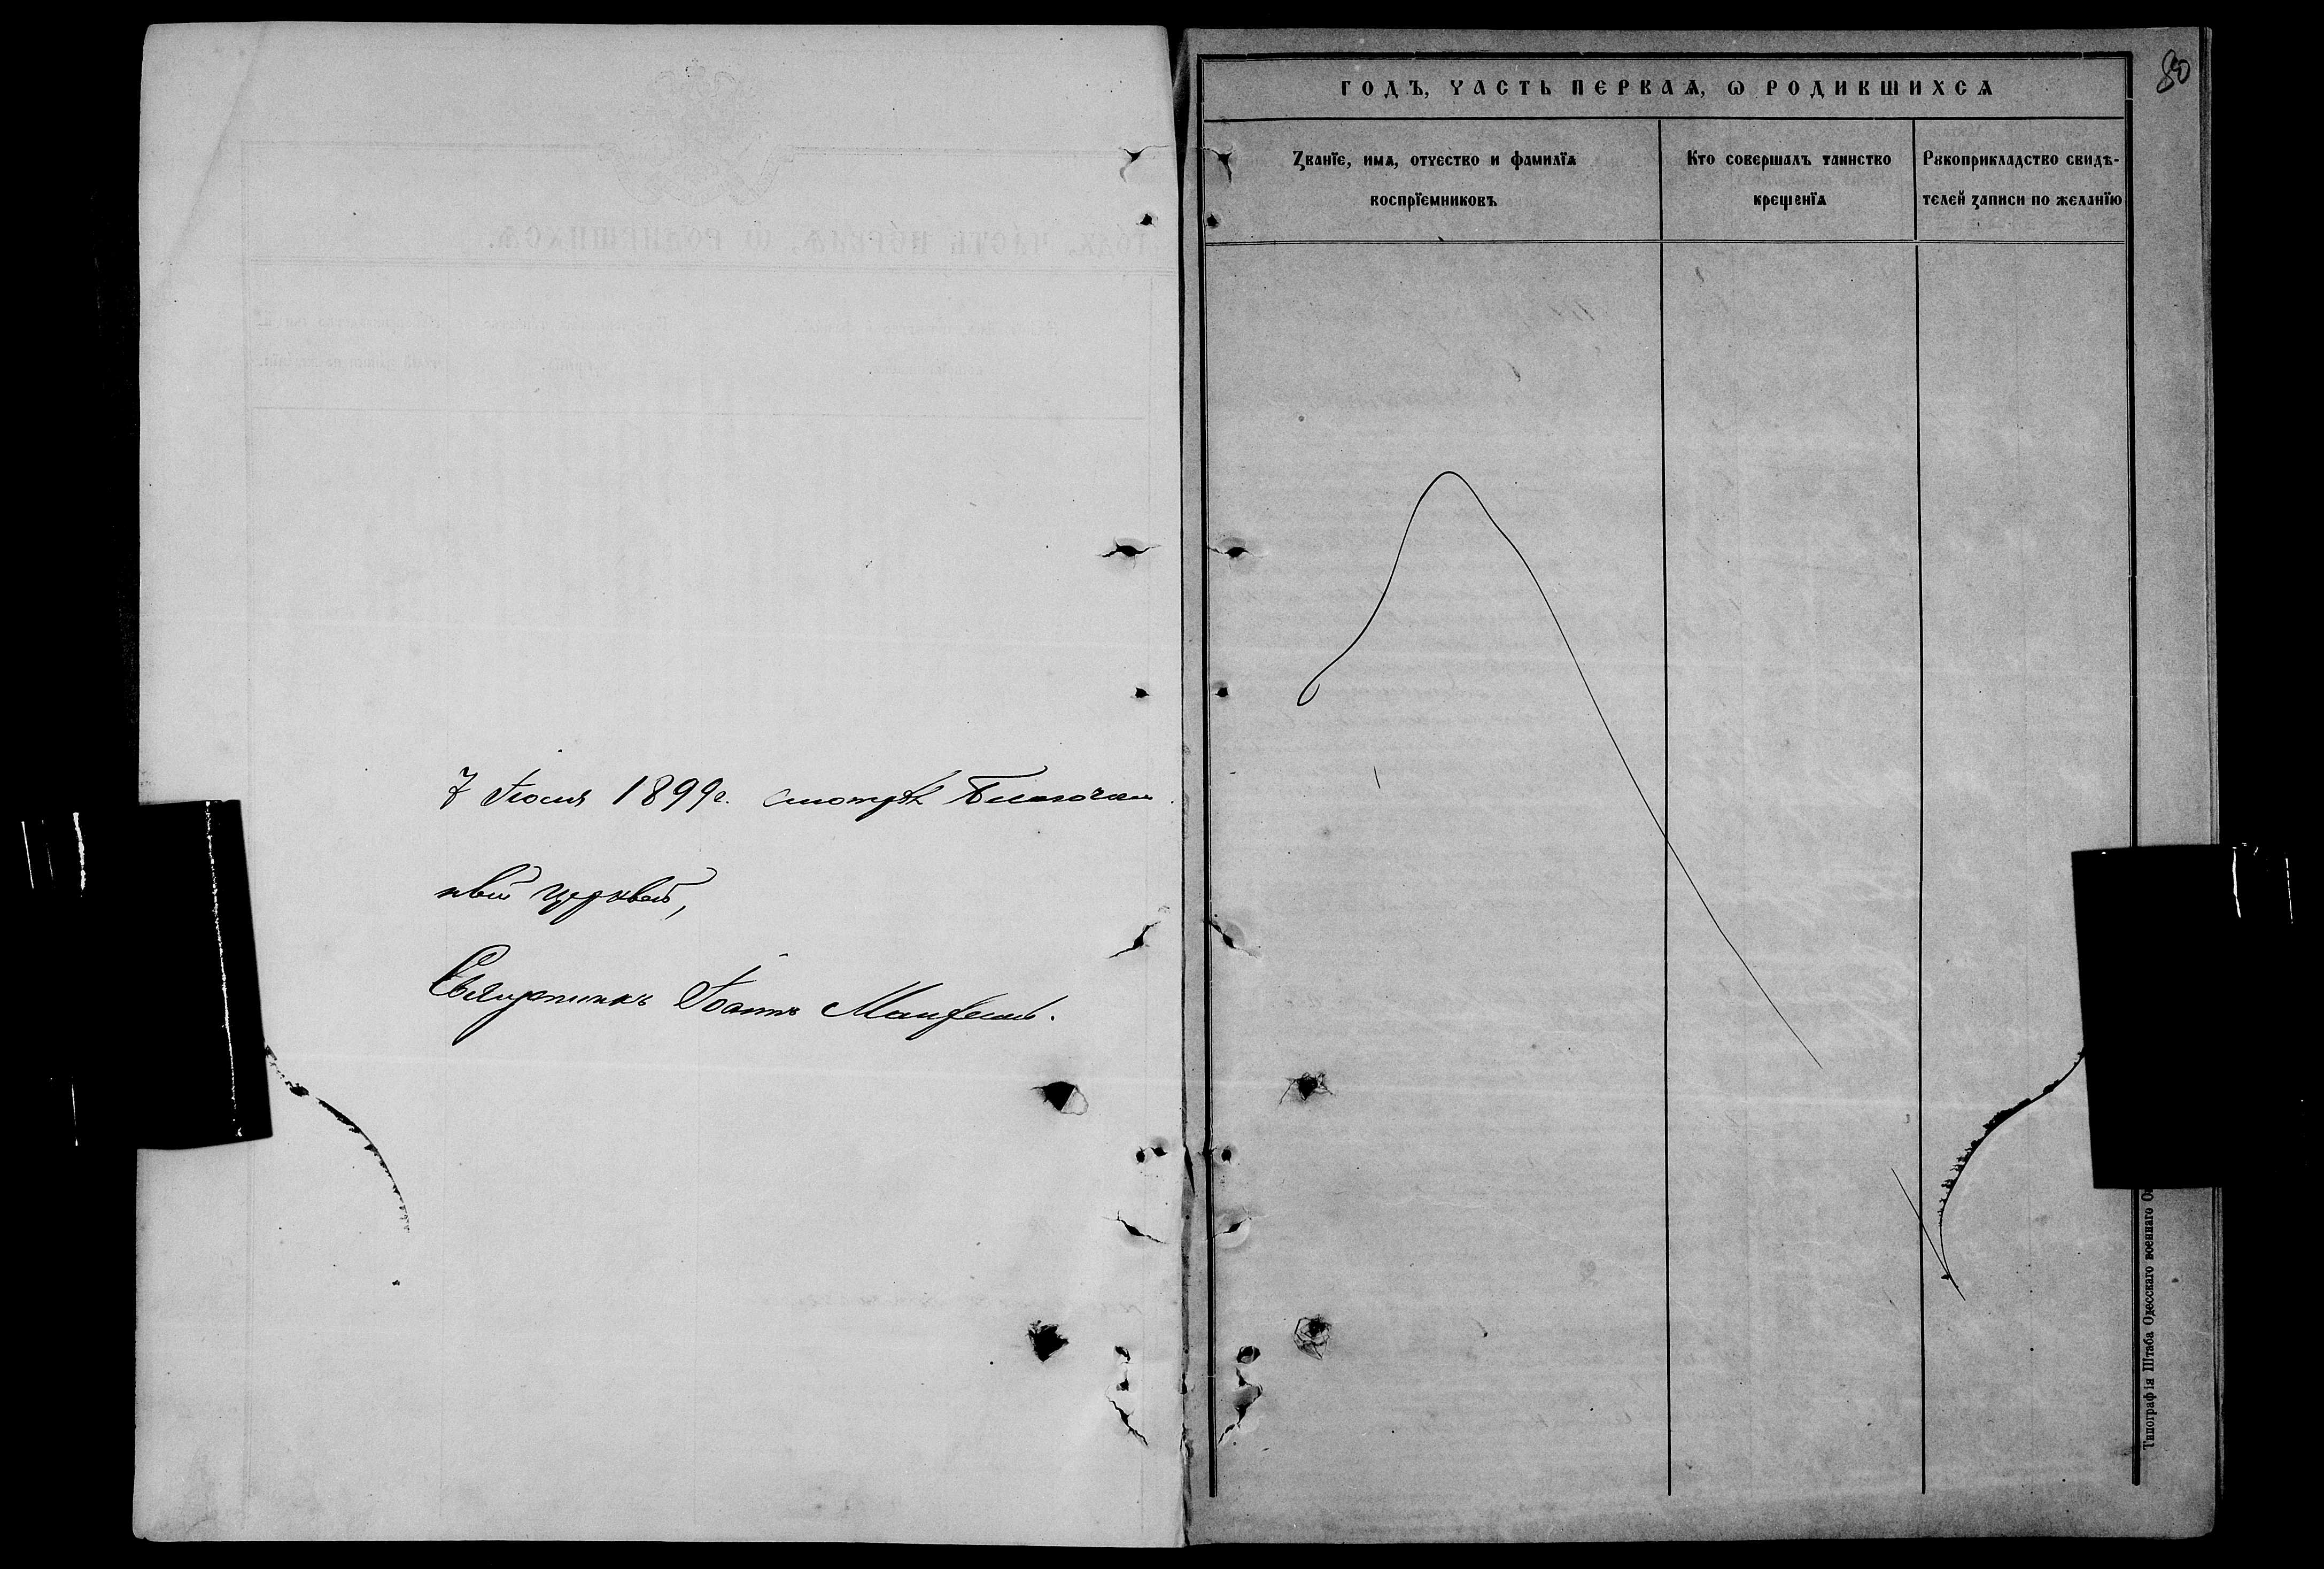 7 Іюня 1899 г. смотрѣлъ Благочин
ный церквей,
Священникъ Іоаннъ
80
ГОДЪ, ЧАСТЬ ПЕРВАѦ, Ѡ РОДИВШИХСѦ
Званїе, имѧ, отчество и фамилїѧ
воспрїемниковъ
Кто совершалъ таинство
крещенїѧ
Рꙋкоприкладство свидѣ-
телей записи по желанїю
Типографія Штаба Одесскаго военнаго